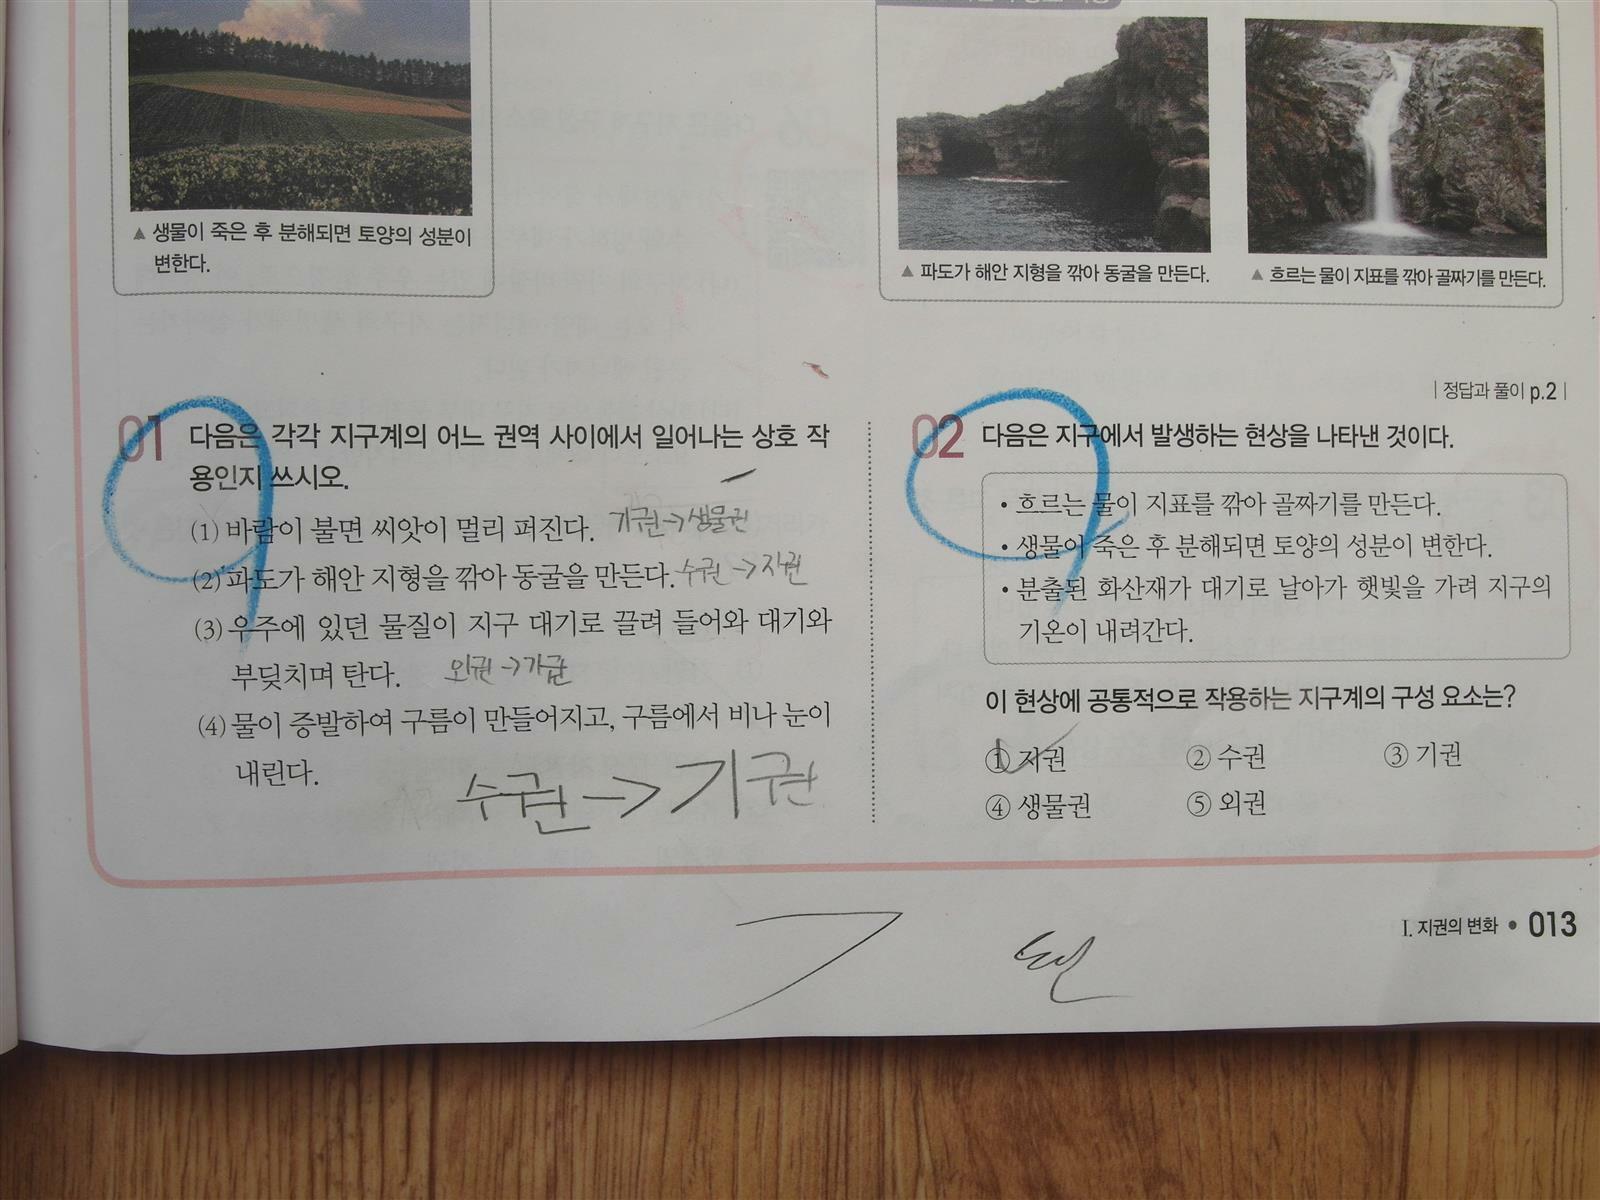 ▲ 생물이 죽은 후 분해되면 토양의 성분이
변한다.
▲ 파도가 해안 지형을 깎아 동굴을 만든다.
▲ 흐르는 물이 지표를 깎아 골짜기를 만든다.
| 정답과 풀이 p.2 |
01 다음은 각각 지구계의 어느 권역 사이에서 일어나는 상호 작
용인지 쓰시오.
(1) 바람이 불면 씨앗이 멀리 퍼진다. 기권→생물권
(2) 파도가 해안 지형을 깎아 동굴을 만든다. 수권→지권
(3) 우주에 있던 물질이 지구 대기로 끌려 들어와 대기와
부딪치며 탄다. 외권→기권
(4) 물이 증발하여 구름이 만들어지고, 구름에서 비나 눈이
내린다. 수권→기권
02 다음은 지구에서 발생하는 현상을 나타낸 것이다.
• 흐르는 물이 지표를 깎아 골짜기를 만든다.
• 생물이 죽은 후 분해되면 토양의 성분이 변한다.
• 분출된 화산재가 대기로 날아가 햇빛을 가려 지구의
기온이 내려간다.
이 현상에 공통적으로 작용하는 지구계의 구성 요소는?
① 지권 ② 수권 ③ 기권
④ 생물권 ⑤ 외권
I. 지권의 변화 • 013